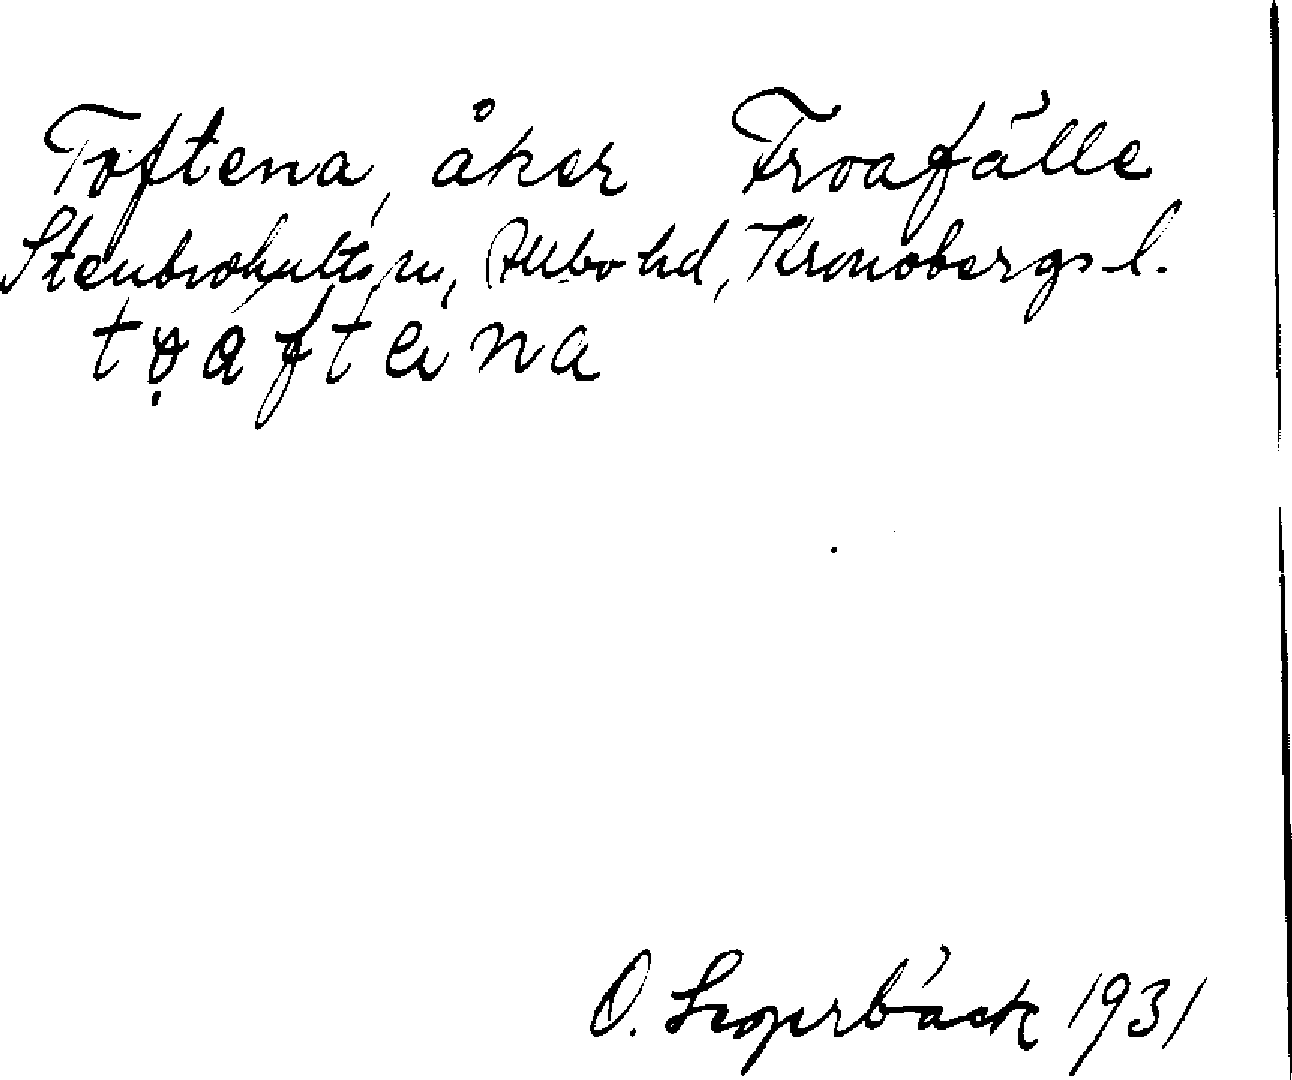 Toftena, åker Froafälle
Stenbrohults sn, Allbo hd, Kronobergs l.
tọaftena
O. Lagerbäck 1931